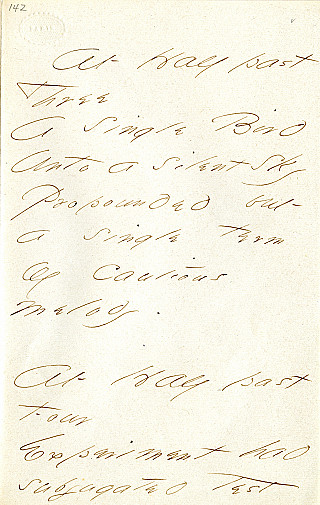 142
At Half past
Three
A Single Bird
Unto a silent sky
Propounded but
a single term
Of cautious
melody.
At Half past
Four
Experiment had
subjugated Test